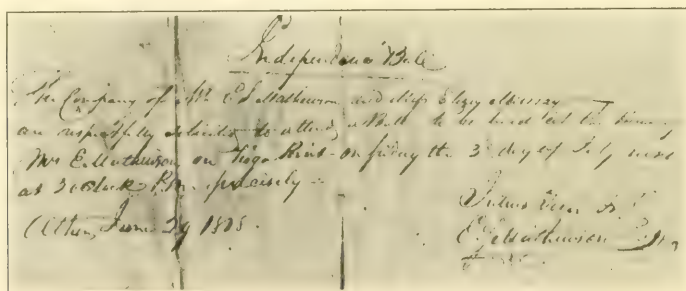 Independence Ball
The Company of Mr E S Mathewson and Miss Elizy
are respectfully solicited to attend a Ball to be held at the house
Mrs E. Mathewson on Tioga Point on friday the 3d day of July next
at 3 o Clock P.m. precisely
Athens, June 29
E. Mathewson